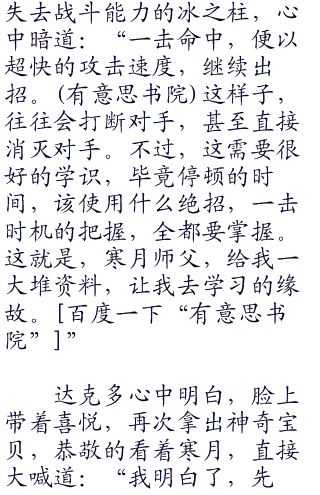 失去战斗能力的冰之柱，心
中暗道：“一击命中，便以
超快的攻击速度，继续出
招。(有意思书院)这样子，
往往会打断对手，甚至直接
消灭对手。不过，这需要很
好的学识，毕竟停顿的时
间，该使用什么绝招，一击
时机的把握，全都要掌握。
这就是，寒月师父，给我一
大堆资料，让我去学习的缘
故。[百度一下“有意思书
院”]”
达克多心中明白，脸上
带着喜悦，再次拿出神奇宝
贝，恭敬的看着寒月，直接
大喊道：“我明白了，先